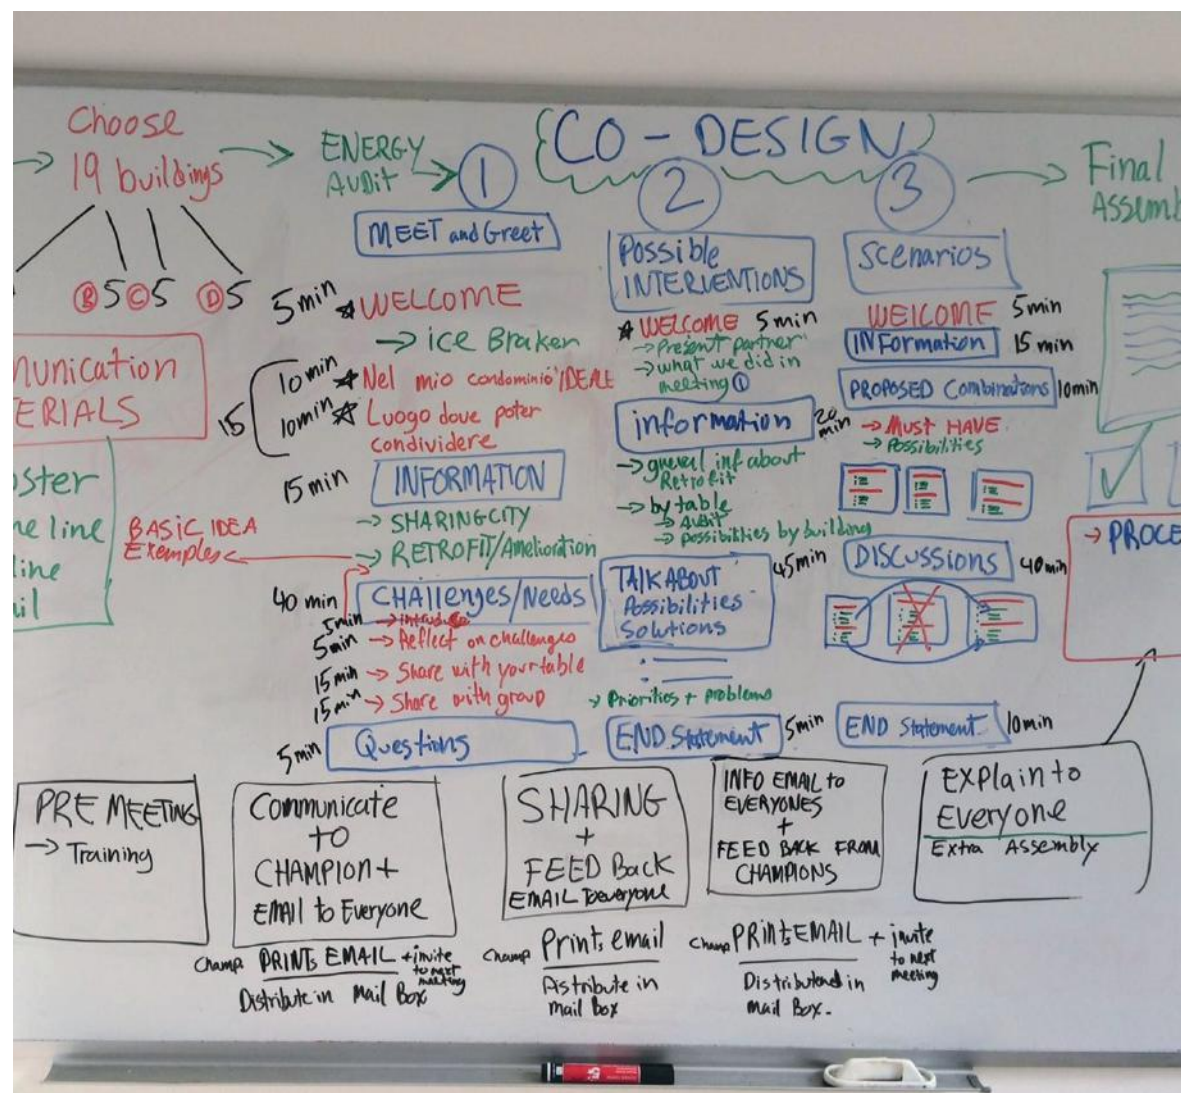 Choose
19 buildings
B 5 C 5 D 5
ENERGY
AUDIT
CO-DESIGN
1
MEET and Greet
5 min WELCOME
ice Braken
10 min Nel mio condominio IDEALE
15
10 min Luogo dove poter
condividere
15 min INFORMATION
SHARING CITY
RETROFIT/Amelioration
BASIC IDEA
Exemples
40 min CHAllenges/Needs
5 min
5 min Reflect on challenges
15 min Share with your table
15 min Share with group
5 min Questions
2
POSSible
INTERVENTIONS
WELCOME 5 min
Present partner
what we did in
meeting 1
information 20 min
general inf about
Retrofit
by table
Audit
possibilities by building
TALK ABOUT 45 min
Possibilities
Solutions
Priorities + problems
END Statement 5 min
3
Scenarios
WElCOME 5 min
INFormation 15 min
PROPOSED Combinations 10 min
MUST HAVE
Possibilities
DISCUSSIONS 40 min
END Statement 10 min
Final
ASSEMb
nunication
ERIALS
oster
ne line
line
ail
PROCE
PRE MEETING
Training
Communicate
TO
CHAMPION +
EMAIl to Everyone
Champ PRINTs EMAIL + invite
to next
meeting
Distribute in Mail Box
SHARING
+
FEED Back
EMAIL To everyone
Champ Prints email
Distribute in
mail Box
INFO EMAIL to
EVERYONES
+
FEED BACK FROM
CHAMPIONS
Champ PRINTs EMAIL + invite
to next
meeting
Distributend in
Mail Box.
EXPlain to
Everyone
Extra Assembly